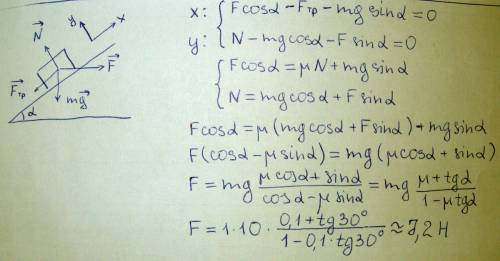 x: { Fcosα – Fтр – mg sinα = 0
y: { N – mgcosα – F sinα = 0
{ Fcosα = μN + mg sinα
{ N = mgcosα + F sinα
Fcosα = μ(mgcosα + Fsinα) + mgsinα
F(cosα – μsinα) = mg(μcosα + sinα)
F = mg (μcosα + sinα)/(cosα – μsinα) = mg (μ + tgα)/(1 – μtgα)
F = 1·10· (0,1 + tg30°)/(1 – 0,1·tg30°) ≈ 7,2 H
y
x
N
F
Fтр
mg
α